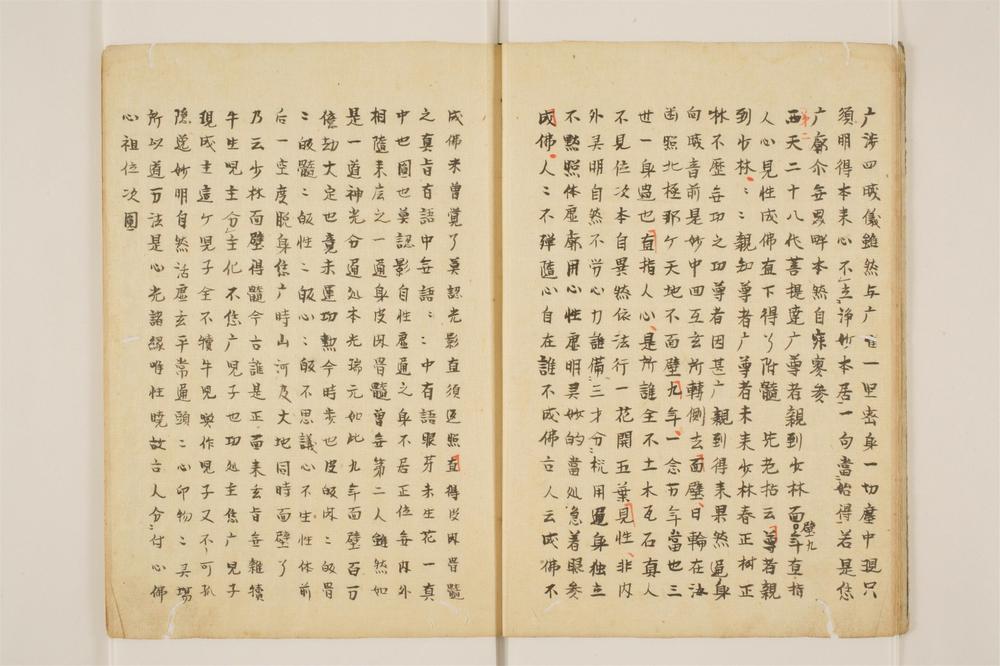 广涉四威儀雖然与广唯一円密身一切塵中現只
須明得本来心不立浄妙本居一句當始得若是恁
广廓尒無畧畔本然自寂寥参
第二
西天二十八代菩提達广尊者親到少林面壁九年直指
人心見性成佛直下得了附髓 先老拈云尊者親
到少林〻〻親知尊者广尊者未来少林春正樹正
林不歴無功之功尊者因甚广親到得来果然通身
向威音前是妙中回互玄所轉側去面壁日輪在汝
照北極那ケ天地不面壁九年一念万年當也三
世一身盡也直指人心是所誰全不土木瓦石真人
不見位次本自異然依法行一花開五葉見性非内
外灵明自然不労心力誰備三才分用通身独立
不黙照体虚廓用心性虚明灵妙的當処急着眼参
成佛人〻不随心自在誰不成佛言人云成佛不
成佛未曾覚了莫認光影直須返照直得皮肉骨髓
之真旨有語中無語〻中有語眼芽未生花一真
中也圖也莫認影自性虚通之身不居正位無内外
相随来底之一通身皮肉骨髓曽無第二人雖然如
是一道神光分通処本光瑞元如此九年面壁百万
億劫大定也竟未運功勲今時歩也皮皈肉〻皈骨
〻皈髓〻皈性〻皈心〻皈不思議心不生性体前
后一空度脱身恁广時山河及大地同時面壁了
乃云少林面壁得髓今言誰是正面来玄旨無雜犢
牛生児主分主化不恁广児子也功処主恁广児子
現成主這ケ児子全不犢牛児喚作児子又不可
隐妙明自然活虚玄平常通頭〻心印物〻灵場
所以道万法是心光諸縁唯性暁故言人分付心佛
心祖位次圖